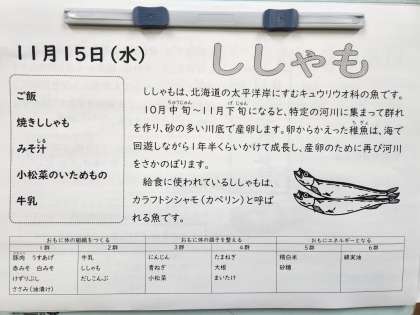 11月15日(水)
ししゃも
ご飯
焼きししゃも
みそ汁
小松菜のいためもの
牛乳
ししゃもは、北海道の太平洋岸にすむキュウリウオ科の魚です。
10月中旬～11月下旬になると、特定の河川に集まって群れ
を作り、砂の多い川底で産卵します。卵からかえった稚魚は、海で
回遊しながら1年半くらいかけて成長し、産卵のために再び河川
をさかのぼります。
給食に使われているししゃもは、
カラフトシシャモ(カペリン)と呼ば
れる魚です。
おもに体の組織をつくる おもに体の調子を整える おもにエネルギーとなる
1群 2群 3群 4群 5群 6群
豚肉 うすあげ 牛乳 にんじん たまねぎ 精白米 綿実油
赤みそ 白みそ ししゃも 青ねぎ 大根 砂糖
けずりぶし だしこんぶ 小松菜 まいたけ
ささみ(油漬け)